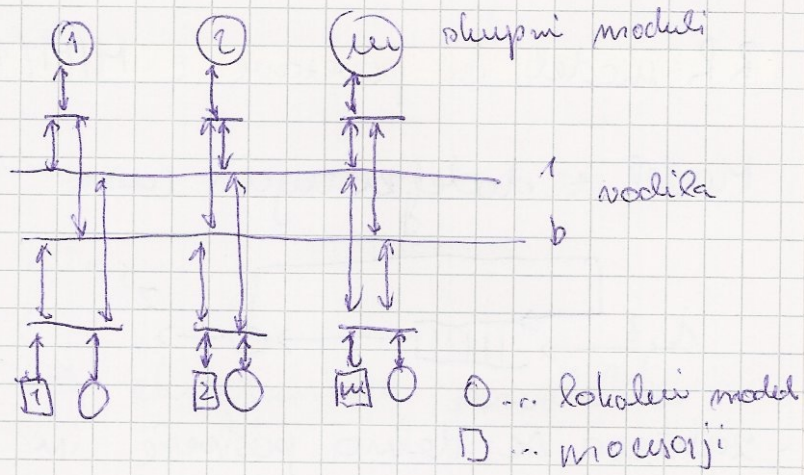 1 2 m skupni moduli
1
vodila
b
1 2 m
○ ... lokalni modul
□ ... procesaji